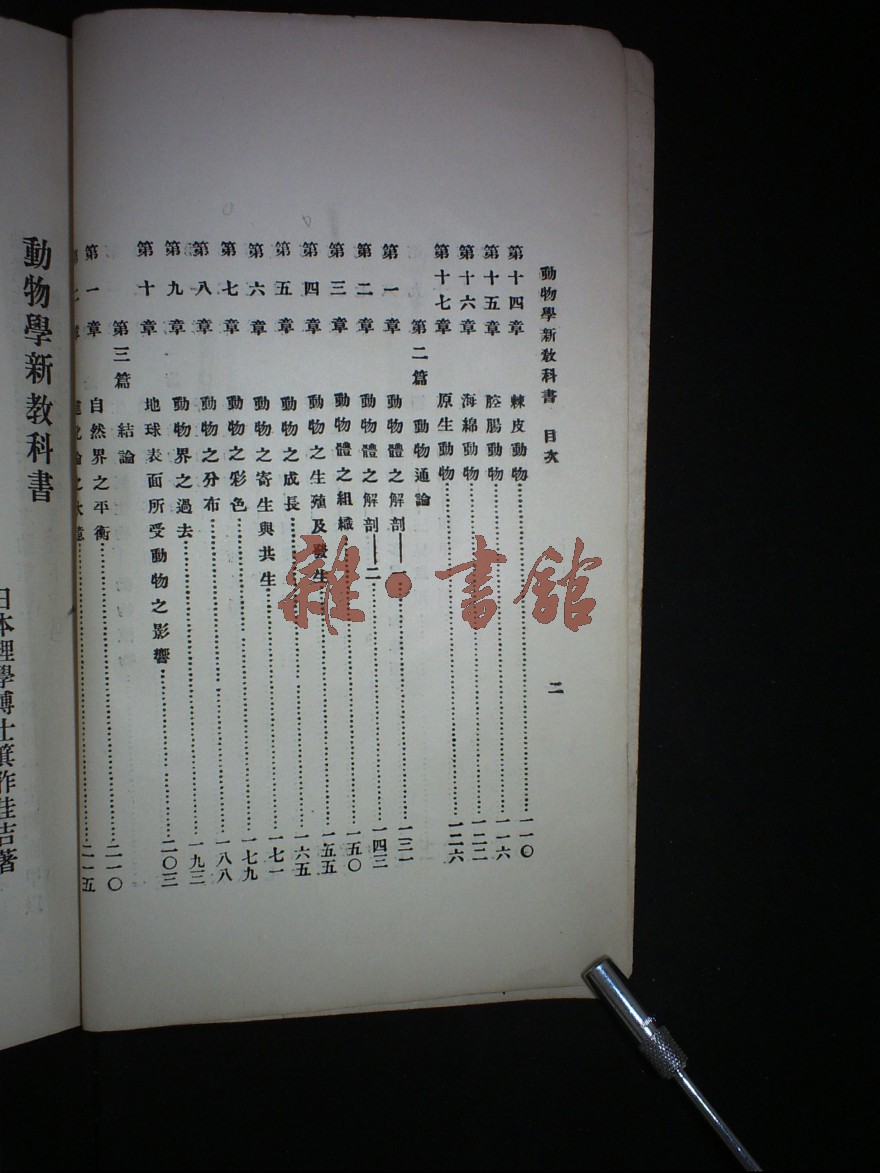 動物學新敎科書 目次 二
第十四章 棘皮動物 一一〇
第十五章 腔腸動物 一一六
第十六章 海綿動物 一二二
第十七章 原生動物 一二六
第二篇 動物通論
第一章 動物體之解剖——一 一三一
第二章 動物體之解剖——二 一四三
第三章 動物體之組織 一五〇
第四章 動物之生殖及發生 一五五
第五章 動物之成長 一六五
第六章 動物之寄生與共生 一七一
第七章 動物之彩色 一七九
第八章 動物之分布 一八八
第九章 動物界之過去 一九三
第十章 地球表面所受動物之影響 二〇三
第三篇 結論
第一章 自然界之平衡 二一〇
章 論之大意 二一五
動物學新教科書
日本理學博士箕作佳吉著
雜·書館